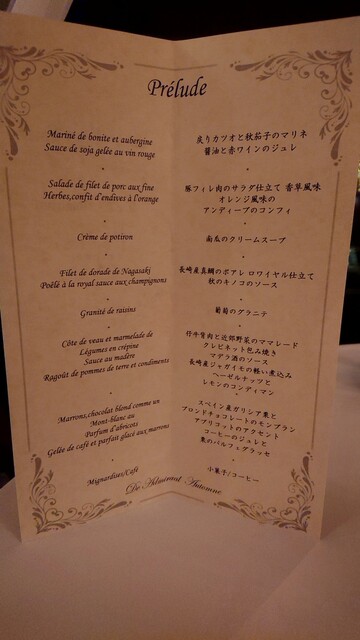 Prélude
Mariné de bonite et aubergine
Sauce de soja gelée au vin rouge
Salade de filet de porc aux fine
Herbes,confit d'endives à l'orange
Crème de potiron
Filet de dorade de Nagasaki
Poêlè à la royal sauce aux champignons
Granité de raisins
Côte de veau et marmelade de
Légumes en crépine
Sauce au madère
Ragoût de pommes de terre et condimente
Marrons,chocolat blend comme un
Mont-blanc au
Parfum d'abricots
Gelée de café et parfait glacé aux marrons
Mignardises/Café
戻りカツオと秋茄子のマリネ
醤油と赤ワインのジュレ
豚フィレ肉のサラダ仕立て 香草風味
オレンジ風味の
アンディーブのコンフィ
南瓜のクリームスープ
長崎産真鯛のポアレ ロワイヤル仕立て
秋のキノコのソース
葡萄のグラニテ
仔牛背肉と近郊野菜のママレード
クレピネット包み焼き
マデラ酒のソース
長崎産ジャガイモの軽い煮込み
ヘーゼルナッツと
レモンのコンディマン
スペイン産ガリシア栗と
ブロンドチョコレートのモンブラン
アプリコットのアクセント
コーヒーのジュレと
栗のパルフェグラッセ
小菓子/コーヒー
De Automne